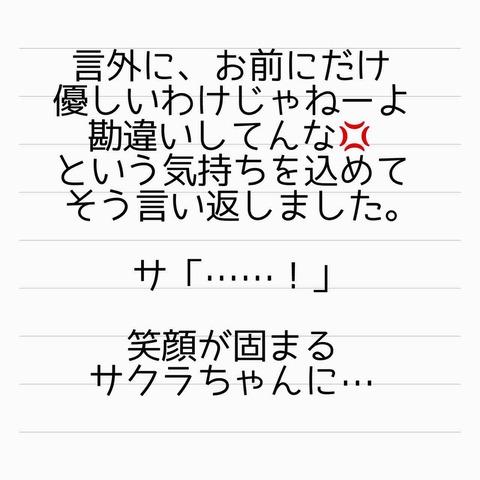 言外に、お前にだけ
優しいわけじゃねーよ
勘違いしてんな💢
という気持ちを込めて
そう言い返しました。
サ「……！」
笑顔が固まる
サクラちゃんに…